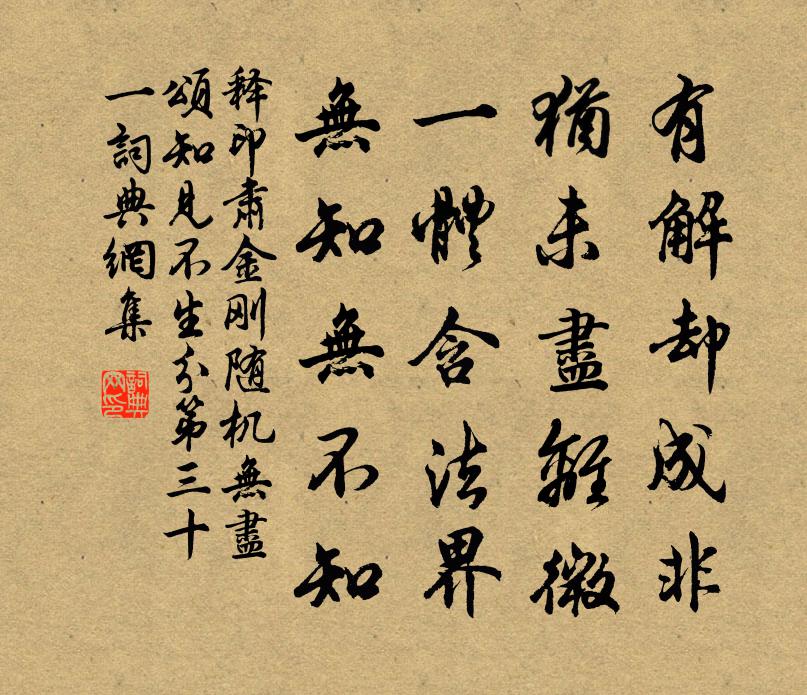 有解却成非
猶未盡離微
一體含法界
無知無不知
释印肃金刚随机無盡
頌知見不生分第三十
一詞典網集
詞典
网印